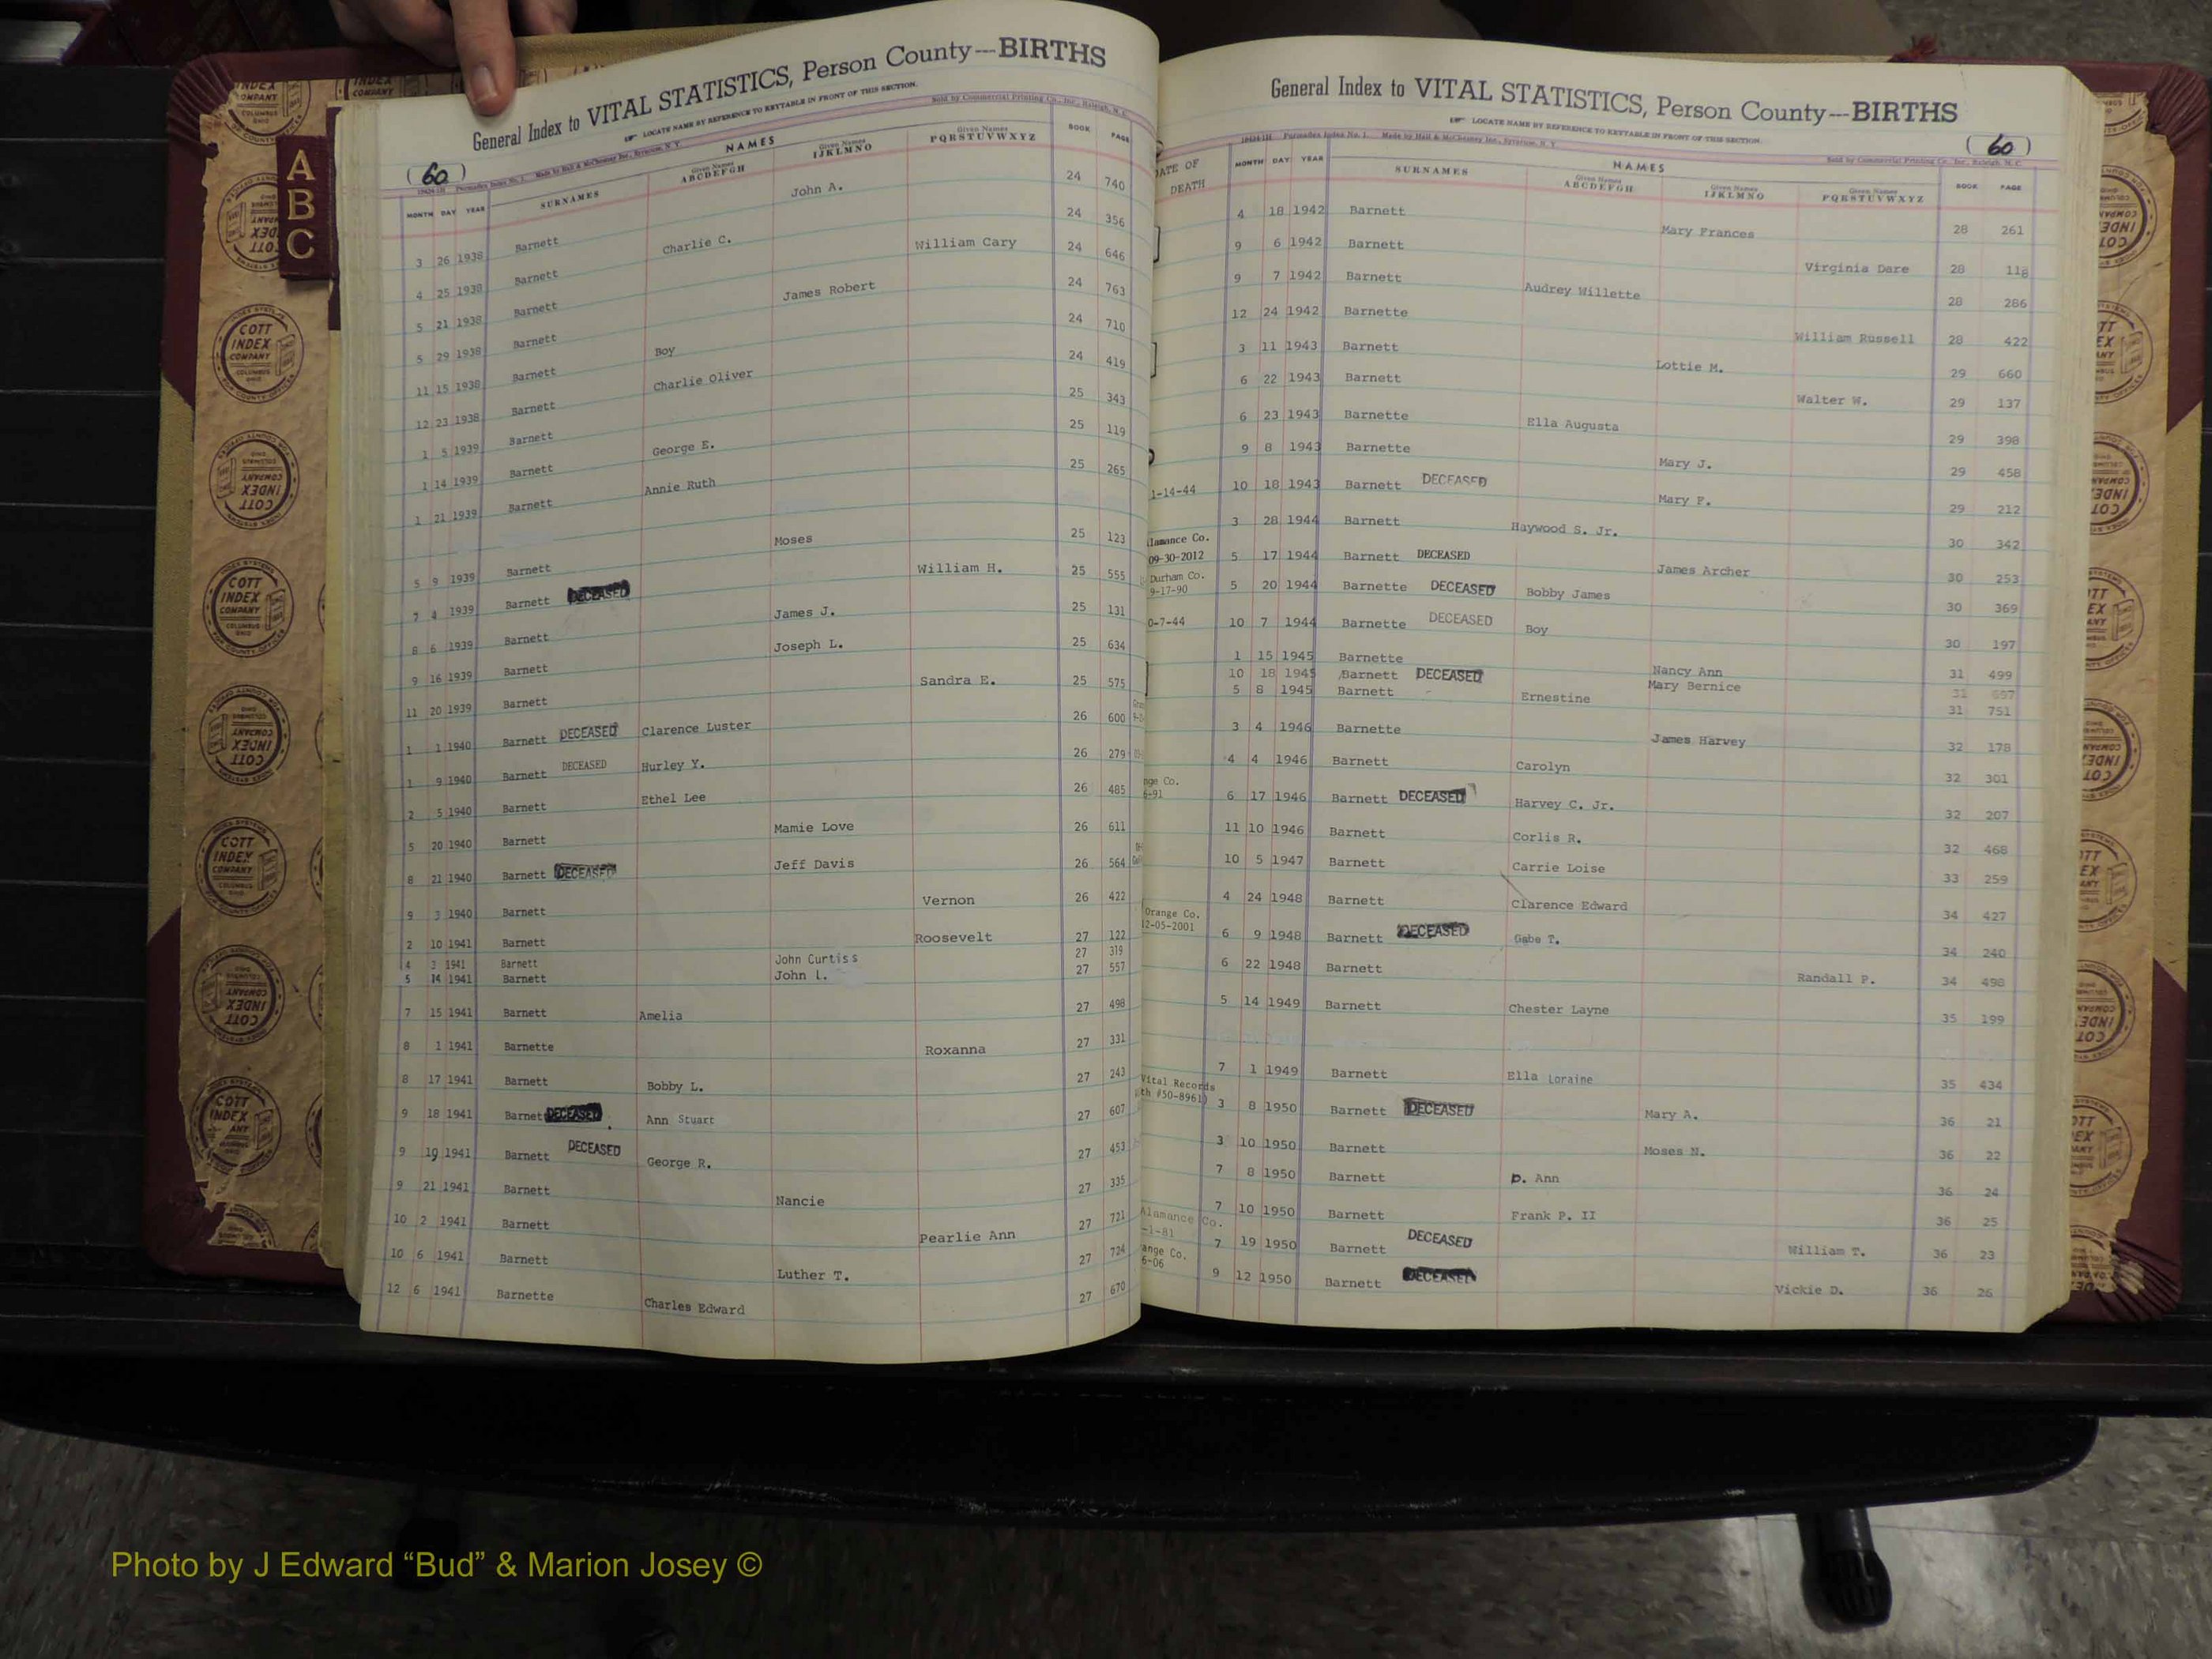 General Index to VITAL STATISTICS, Person County---BIRTHS
LOCATE NAME BY REFERENCE TO KEYTABLE IN FRONT OF THIS SECTION.
Sold by Commercial Printing Co., Inc., Raleigh, N. C.
(60)
MONTH DAY YEAR SURNAMES NAMES Given Names ABCDEFGH Given Names IJKLMNO Given Names PQRSTUVWXYZ BOOK PAGE
A
B
C
3 26 1938 Barnett John A. 24 740
4 25 1938 Barnett Charlie C. 24 356
5 21 1938 Barnett William Cary 24 646
5 29 1938 Barnett James Robert 24 763
11 15 1938 Barnett Boy 24 710
12 23 1938 Barnett Charlie Oliver 24 419
1 5 1939 Barnett 25 343
1 14 1939 Barnett George E. 25 119
1 21 1939 Barnett Annie Ruth 25 265
5 9 1939 Barnett Moses 25 123
7 4 1939 Barnett DECEASED William H. 25 555
8 6 1939 Barnett James J. 25 131
9 16 1939 Barnett Joseph L. 25 634
11 20 1939 Barnett Sandra E. 25 575
1 1 1940 Barnett DECEASED Clarence Luster 26 600
1 9 1940 Barnett DECEASED Hurley Y. 26 279
2 5 1940 Barnett Ethel Lee 26 485
5 20 1940 Barnett Mamie Love 26 611
8 21 1940 Barnett DECEASED Jeff Davis 26 564
9 3 1940 Barnett Vernon 26 422
2 10 1941 Barnett Roosevelt 27 122
4 3 1941 Barnett John Curtiss 27 319
5 14 1941 Barnett John L. 27 557
7 15 1941 Barnett Amelia 27 498
8 1 1941 Barnette Roxanna 27 331
8 17 1941 Barnett Bobby L. 27 243
9 18 1941 Barnet DECEASED Ann Stuart 27 607
9 19 1941 Barnett DECEASED George R. 27 453
9 21 1941 Barnett Nancie 27 335
10 2 1941 Barnett Pearlie Ann 27 721
10 6 1941 Barnett Luther T. 27 724
12 6 1941 Barnette Charles Edward 27 670
General Index to VITAL STATISTICS, Person County---BIRTHS
LOCATE NAME BY REFERENCE TO KEYTABLE IN FRONT OF THIS SECTION.
Sold by Commercial Printing Co., Inc., Raleigh, N. C.
(60)
DATE OF DEATH MONTH DAY YEAR SURNAMES NAMES Given Names ABCDEFGH Given Names IJKLMNO Given Names PQRSTUVWXYZ BOOK PAGE
4 18 1942 Barnett Mary Frances 28 261
9 6 1942 Barnett Virginia Dare 28 118
9 7 1942 Barnett Audrey Willette 28 286
12 24 1942 Barnette William Russell 28 422
3 11 1943 Barnett Lottie M. 29 660
6 22 1943 Barnett Walter W. 29 137
6 23 1943 Barnette Ella Augusta 29 398
9 8 1943 Barnette Mary J. 29 458
1-14-44 10 18 1943 Barnett DECEASED Mary F. 29 212
3 28 1944 Barnett Haywood S. Jr. 30 342
lamance Co. 09-30-2012 5 17 1944 Barnett DECEASED James Archer 30 253
Durham Co. 9-17-90 5 20 1944 Barnette DECEASED Bobby James 30 369
0-7-44 10 7 1944 Barnette DECEASED Boy 30 197
1 15 1945 Barnette Nancy Ann 31 499
10 18 1945 Barnett DECEASED Mary Bernice 31 657
5 8 1945 Barnett Ernestine 31 751
3 4 1946 Barnette James Harvey 32 178
4 4 1946 Barnett Carolyn 32 301
nge Co. 6-91 6 17 1946 Barnett DECEASED Harvey C. Jr. 32 207
11 10 1946 Barnett Corlis R. 32 468
10 5 1947 Barnett Carrie Loise 33 259
4 24 1948 Barnett Clarence Edward 34 427
Orange Co. 12-05-2001 6 9 1948 Barnett DECEASED Gabe T. 34 240
6 22 1948 Barnett Randall P. 34 498
5 14 1949 Barnett Chester Layne 35 199
7 1 1949 Barnett Ella Loraine 35 434
Vital Records th #50-8961) 3 8 1950 Barnett DECEASED Mary A. 36 21
3 10 1950 Barnett Moses N. 36 22
7 8 1950 Barnett D. Ann 36 24
7 10 1950 Barnett Frank P. II 36 25
Alamance Co. -1-81 7 19 1950 Barnett DECEASED William T. 36 23
ange Co. 6-06 9 12 1950 Barnett DECEASED Vickie D. 36 26
COTT INDEX COMPANY COLUMBUS OHIO
Photo by J Edward “Bud” & Marion Josey ©